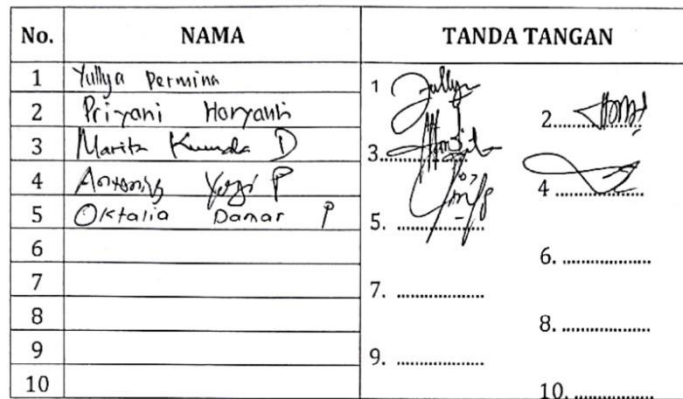 No. NAMA TANDA TANGAN
1 Yullya Permina 1 Yullya
2 Priyani Haryanti 2..................
3 Marita D 3..................
4 Antonius Yogi P 4..................
5 Oktalia Damar P 5. ..................
6 6. ..................
7 7. ..................
8 8. ..................
9 9. ..................
10 10. ..................